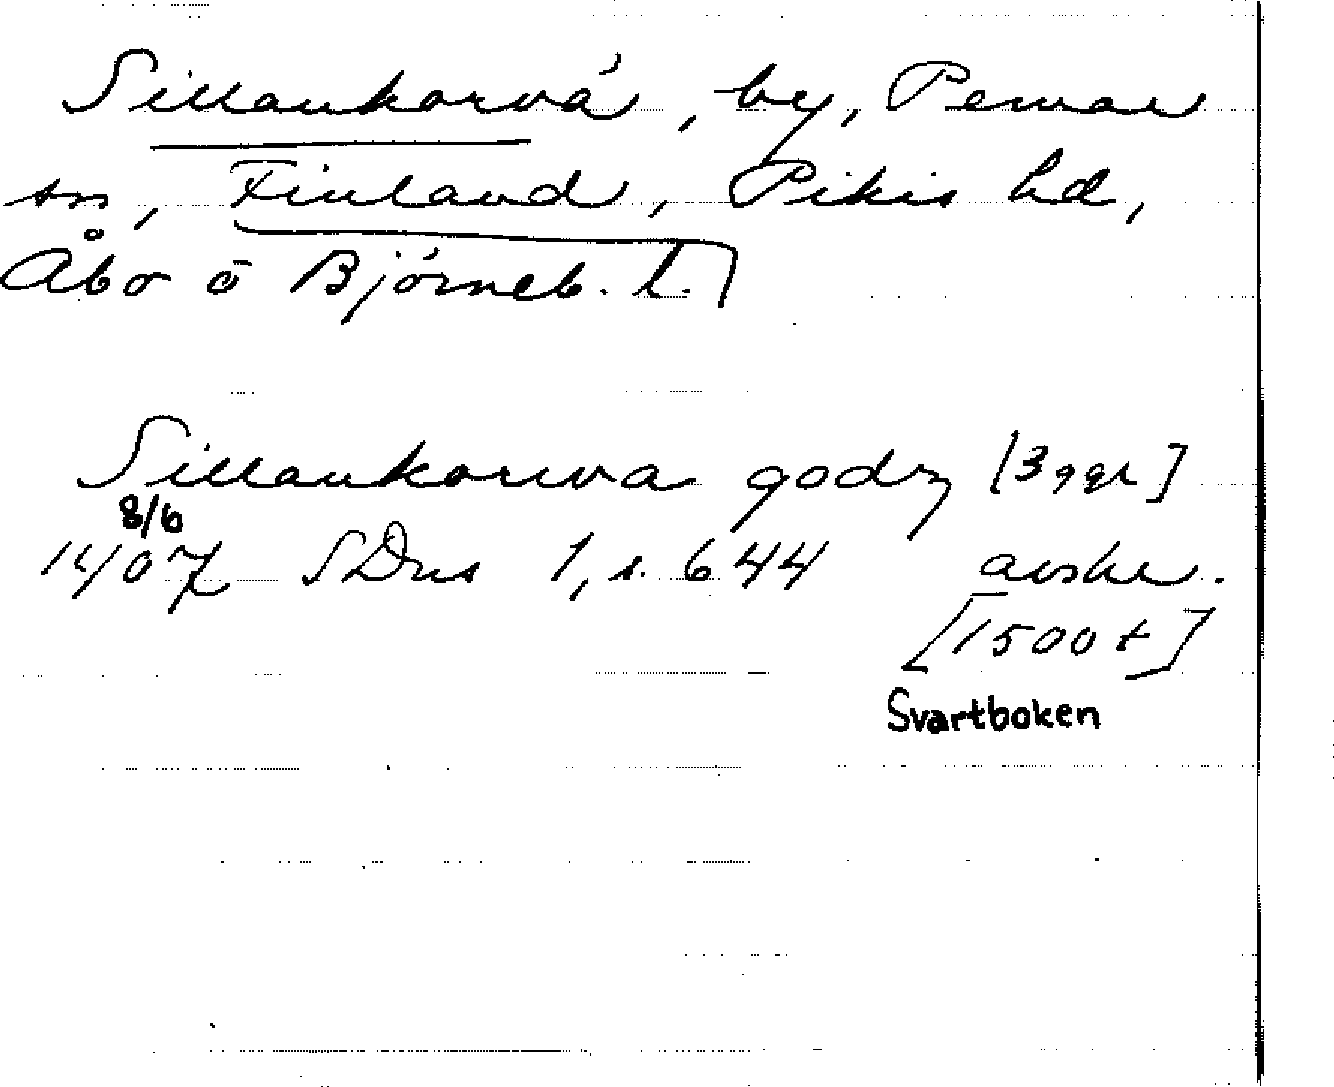 Sillankorvá, by, Pemar
sn, Finland, Pikis hd,
Åbo o Björneb. l.
Sillankorwa godz [3 ggr]
8/6
14/07 SDns 1, s. 644 avskr.
[1500 t]
Svartboken